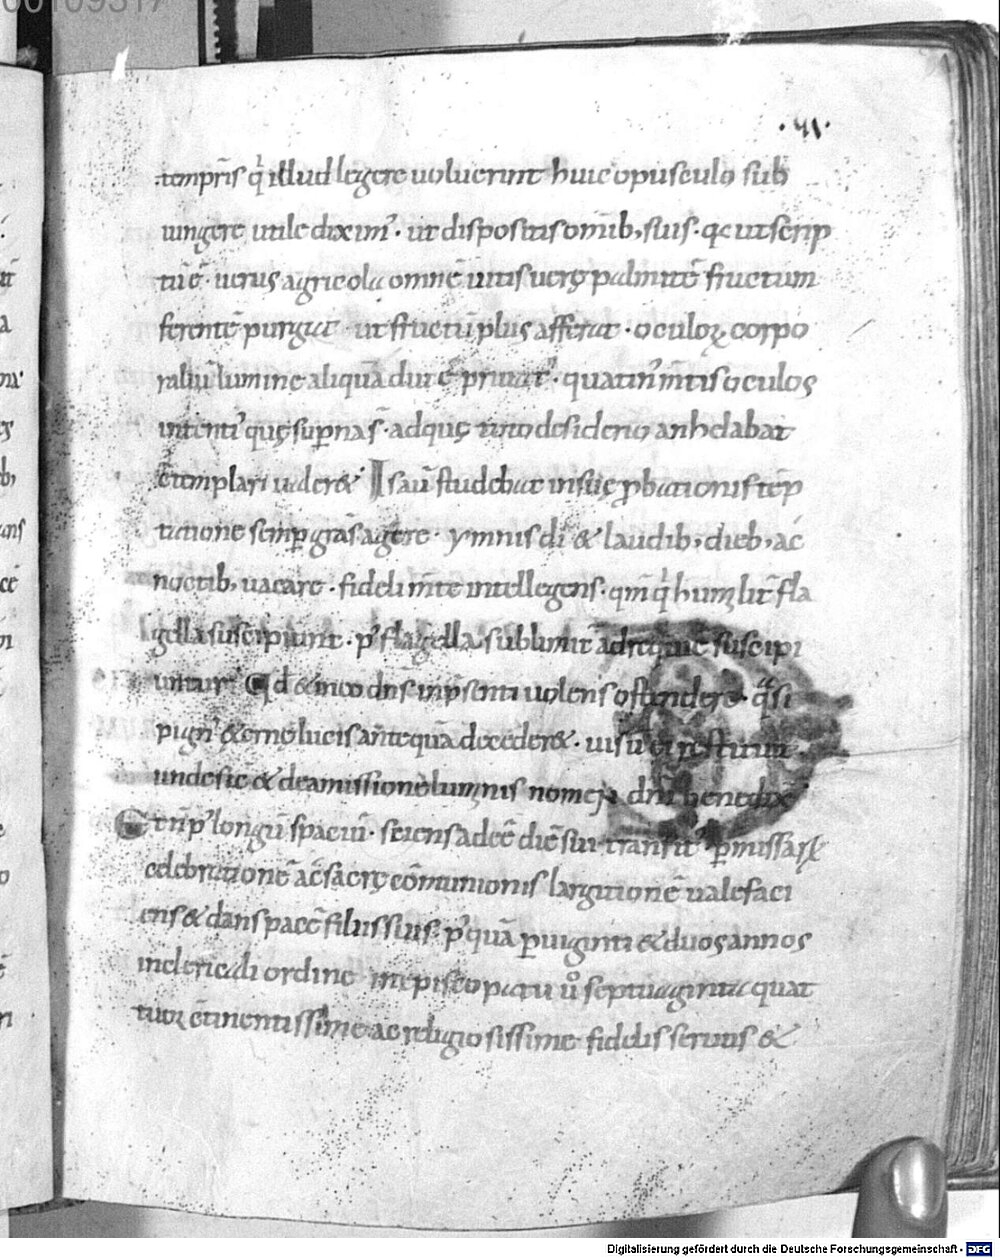 00109317
·vi·
temp̄ris q̇ illud legere uoluerint huic opusculo sub
iungere utile diximꝰ· ut dispositis omīb; suis· qc̄ ut scrip
tū ē· uerus agricola omnē uitis uerę palmitē fructum
ferentē purgat· ut fructū plus afferat· oculoꝝ corpo
raliū lumine aliquādiu ē priuatꝰ· quatinꝰ m̄tis oculos
intentiꝰ quę supernas· ad quę uno desiderio anhelabat
c̄templari ualer&· Is aū studebat in suę p̱bationis tēp
tatione semp̱ gr̄as agere· ymnis dī & laudib; dieb; ac
noctib; uacare· fideli m̄te intellegens· qm̄ q̇ humilit̄ fla
gella suscipiunt· pꝰ flagella· sublimit̄ ad requiē suscipi
untur· Qd̄ & in eo dn̄s in p̱senti uolens ostendere· q̄si
pignꝰ &ernę lucis anteq̄uā deceder&· uisū ei restituit
unde sic & de amissione luminis nomen dn̄i benedixit
Et tn̄ pꝰ longū spaciū· sciens adeē diē sui transitꝰ p̱ missarꝝ
celebrationē ac sacrę cōmunionis largitionē ualefaci
ens & dans pacē filiis suis· pꝰquā p̱ uiginti & duos annos
in clericali ordine in episcopatu ů septuaginta quat
tuor c̄tinentissime ac religiosissime fidelis seruus &
Digitalisierung gefördert durch die Deutsche Forschungsgemeinschaft - DFG